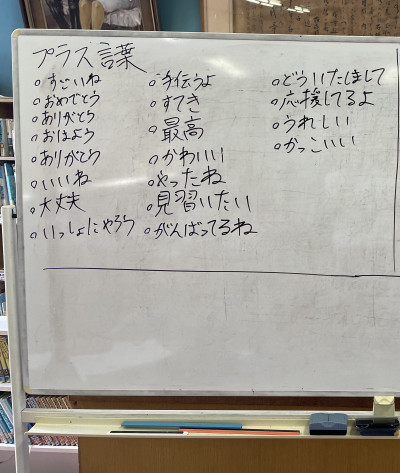 プラス言葉
○すごいね
○おめでとう
○ありがとう
○おはよう
○ありがとう
○いいね
○大丈夫
○いっしょにやろう
○手伝うよ
○すてき
○最高
○かわいい
○やったね
○見習いたい
○がんばってるね
○どういたしまして
○応援してるよ
○うれしい
○かっこいい